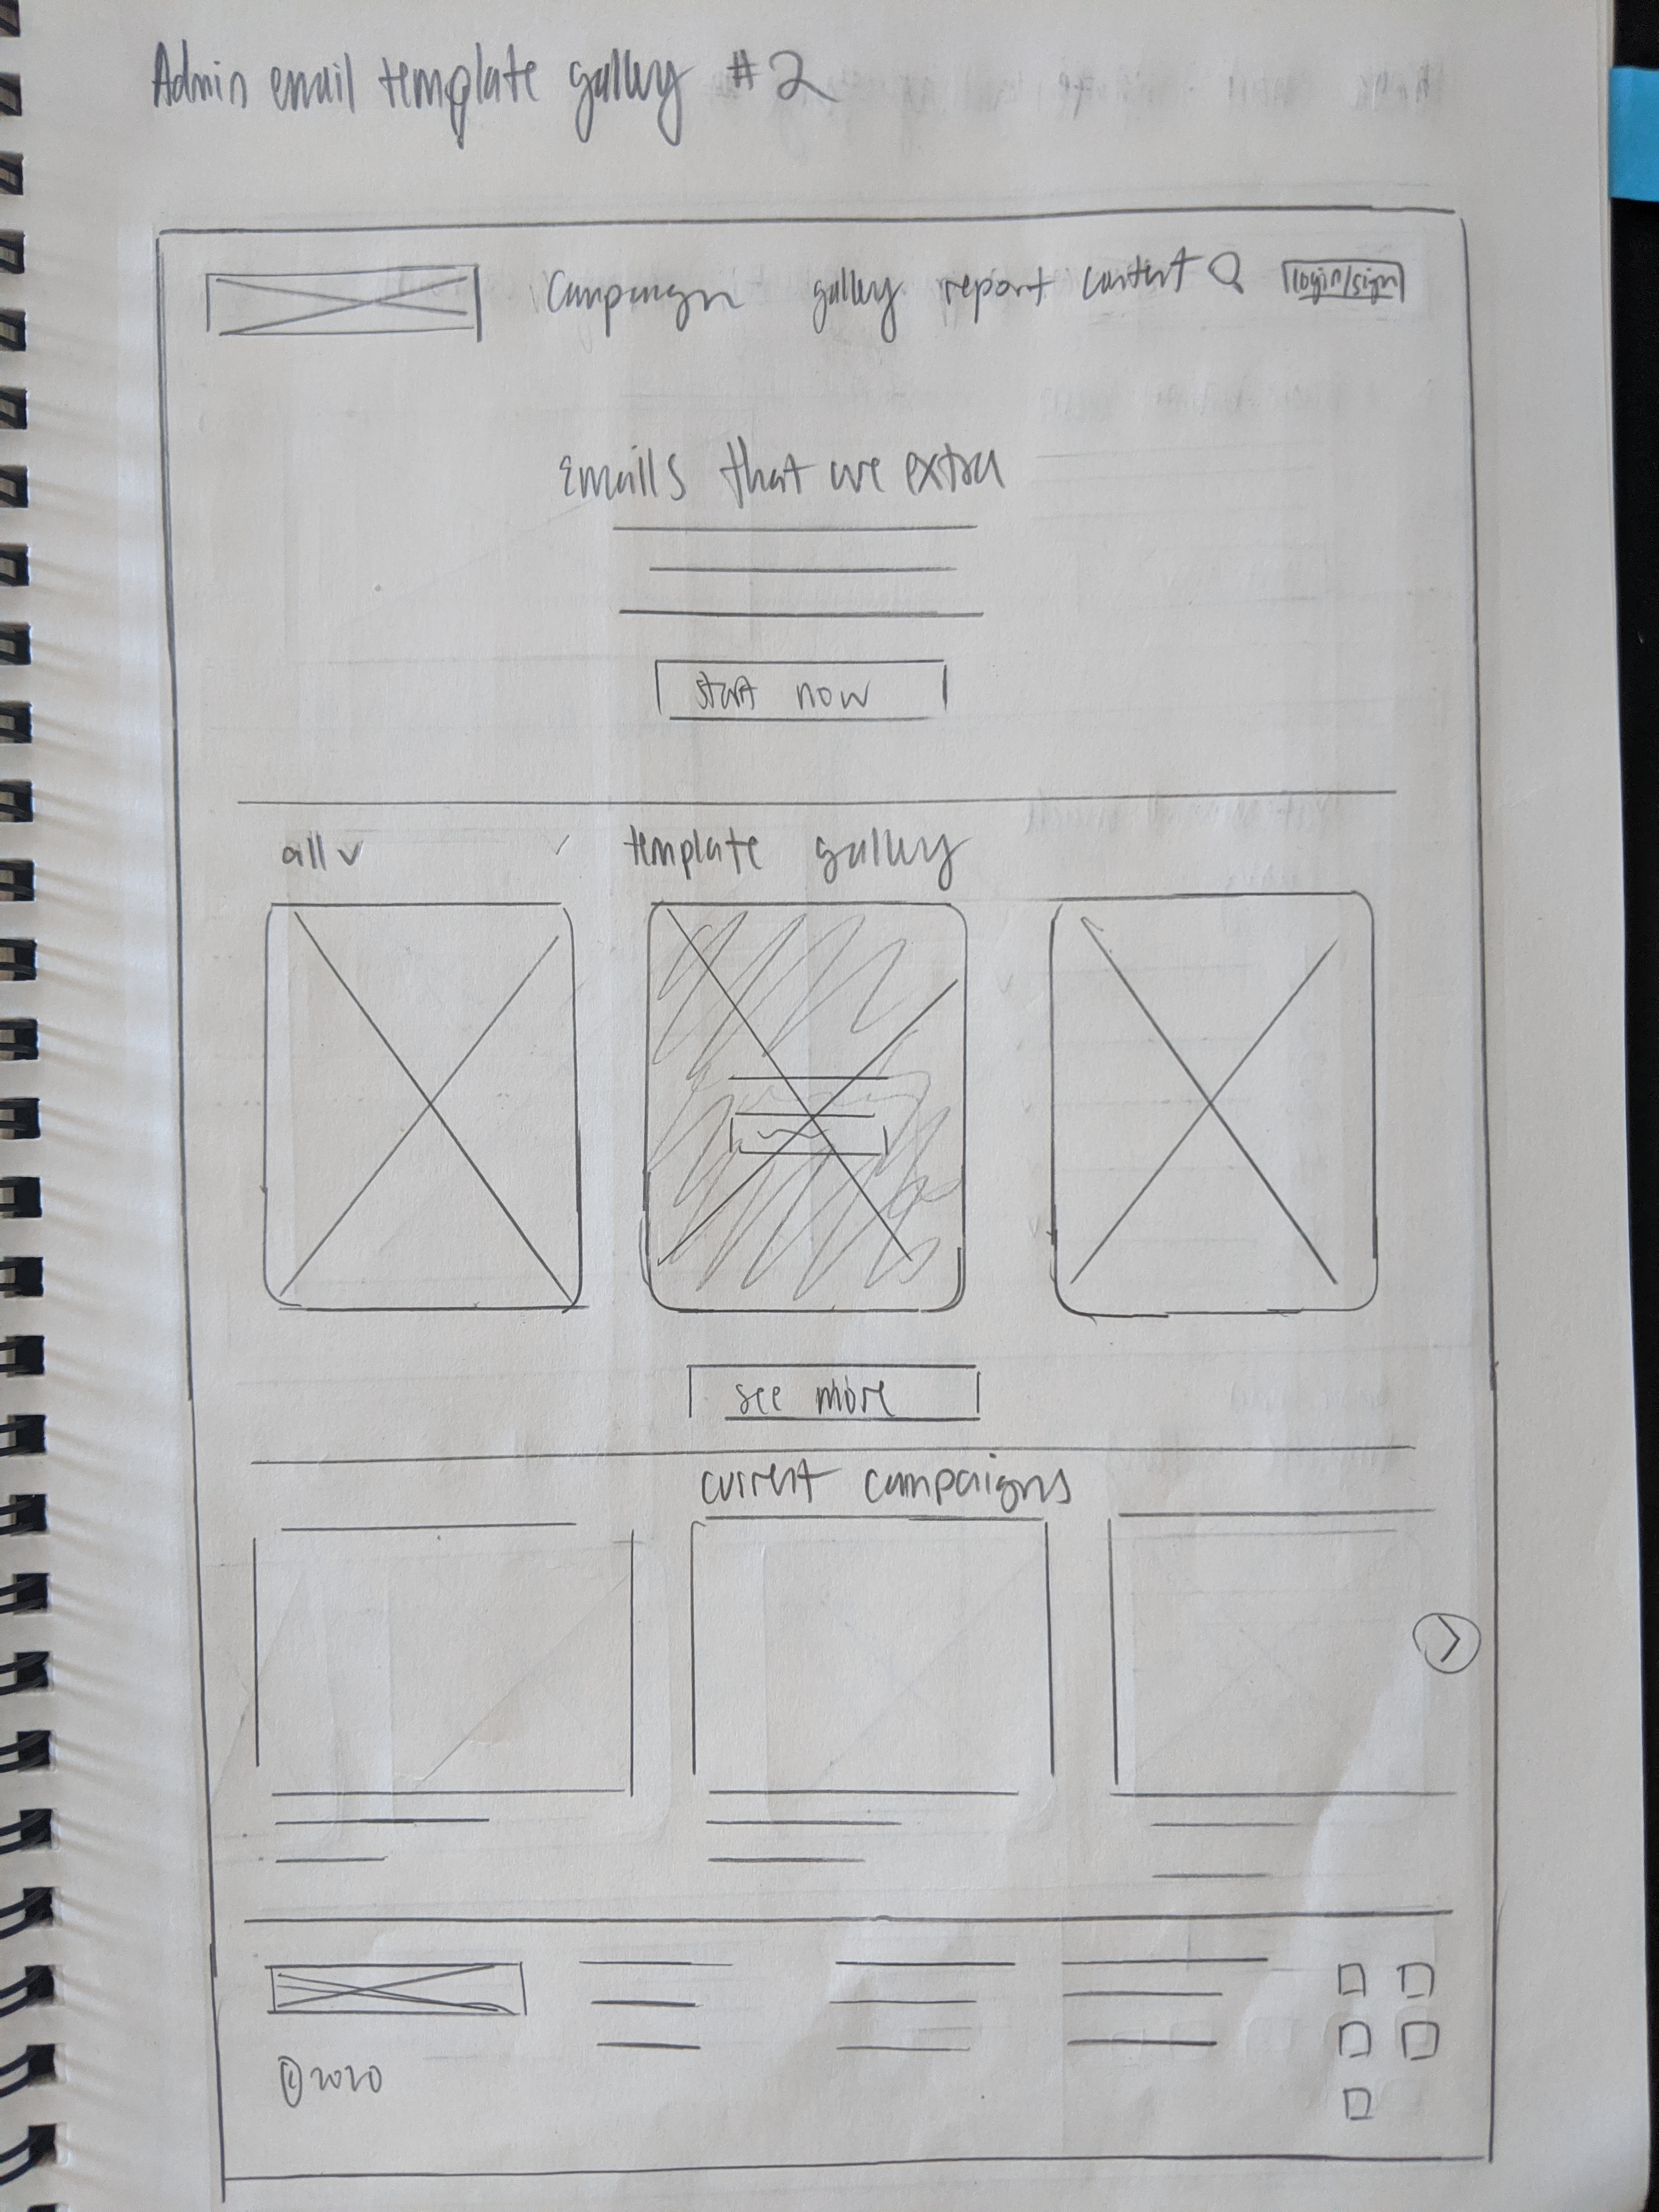 Admin email template gallery #2
Campaign gallery report content login/sign
Emails that are extra
start now
all template gallery
see more
current campaigns
©2020